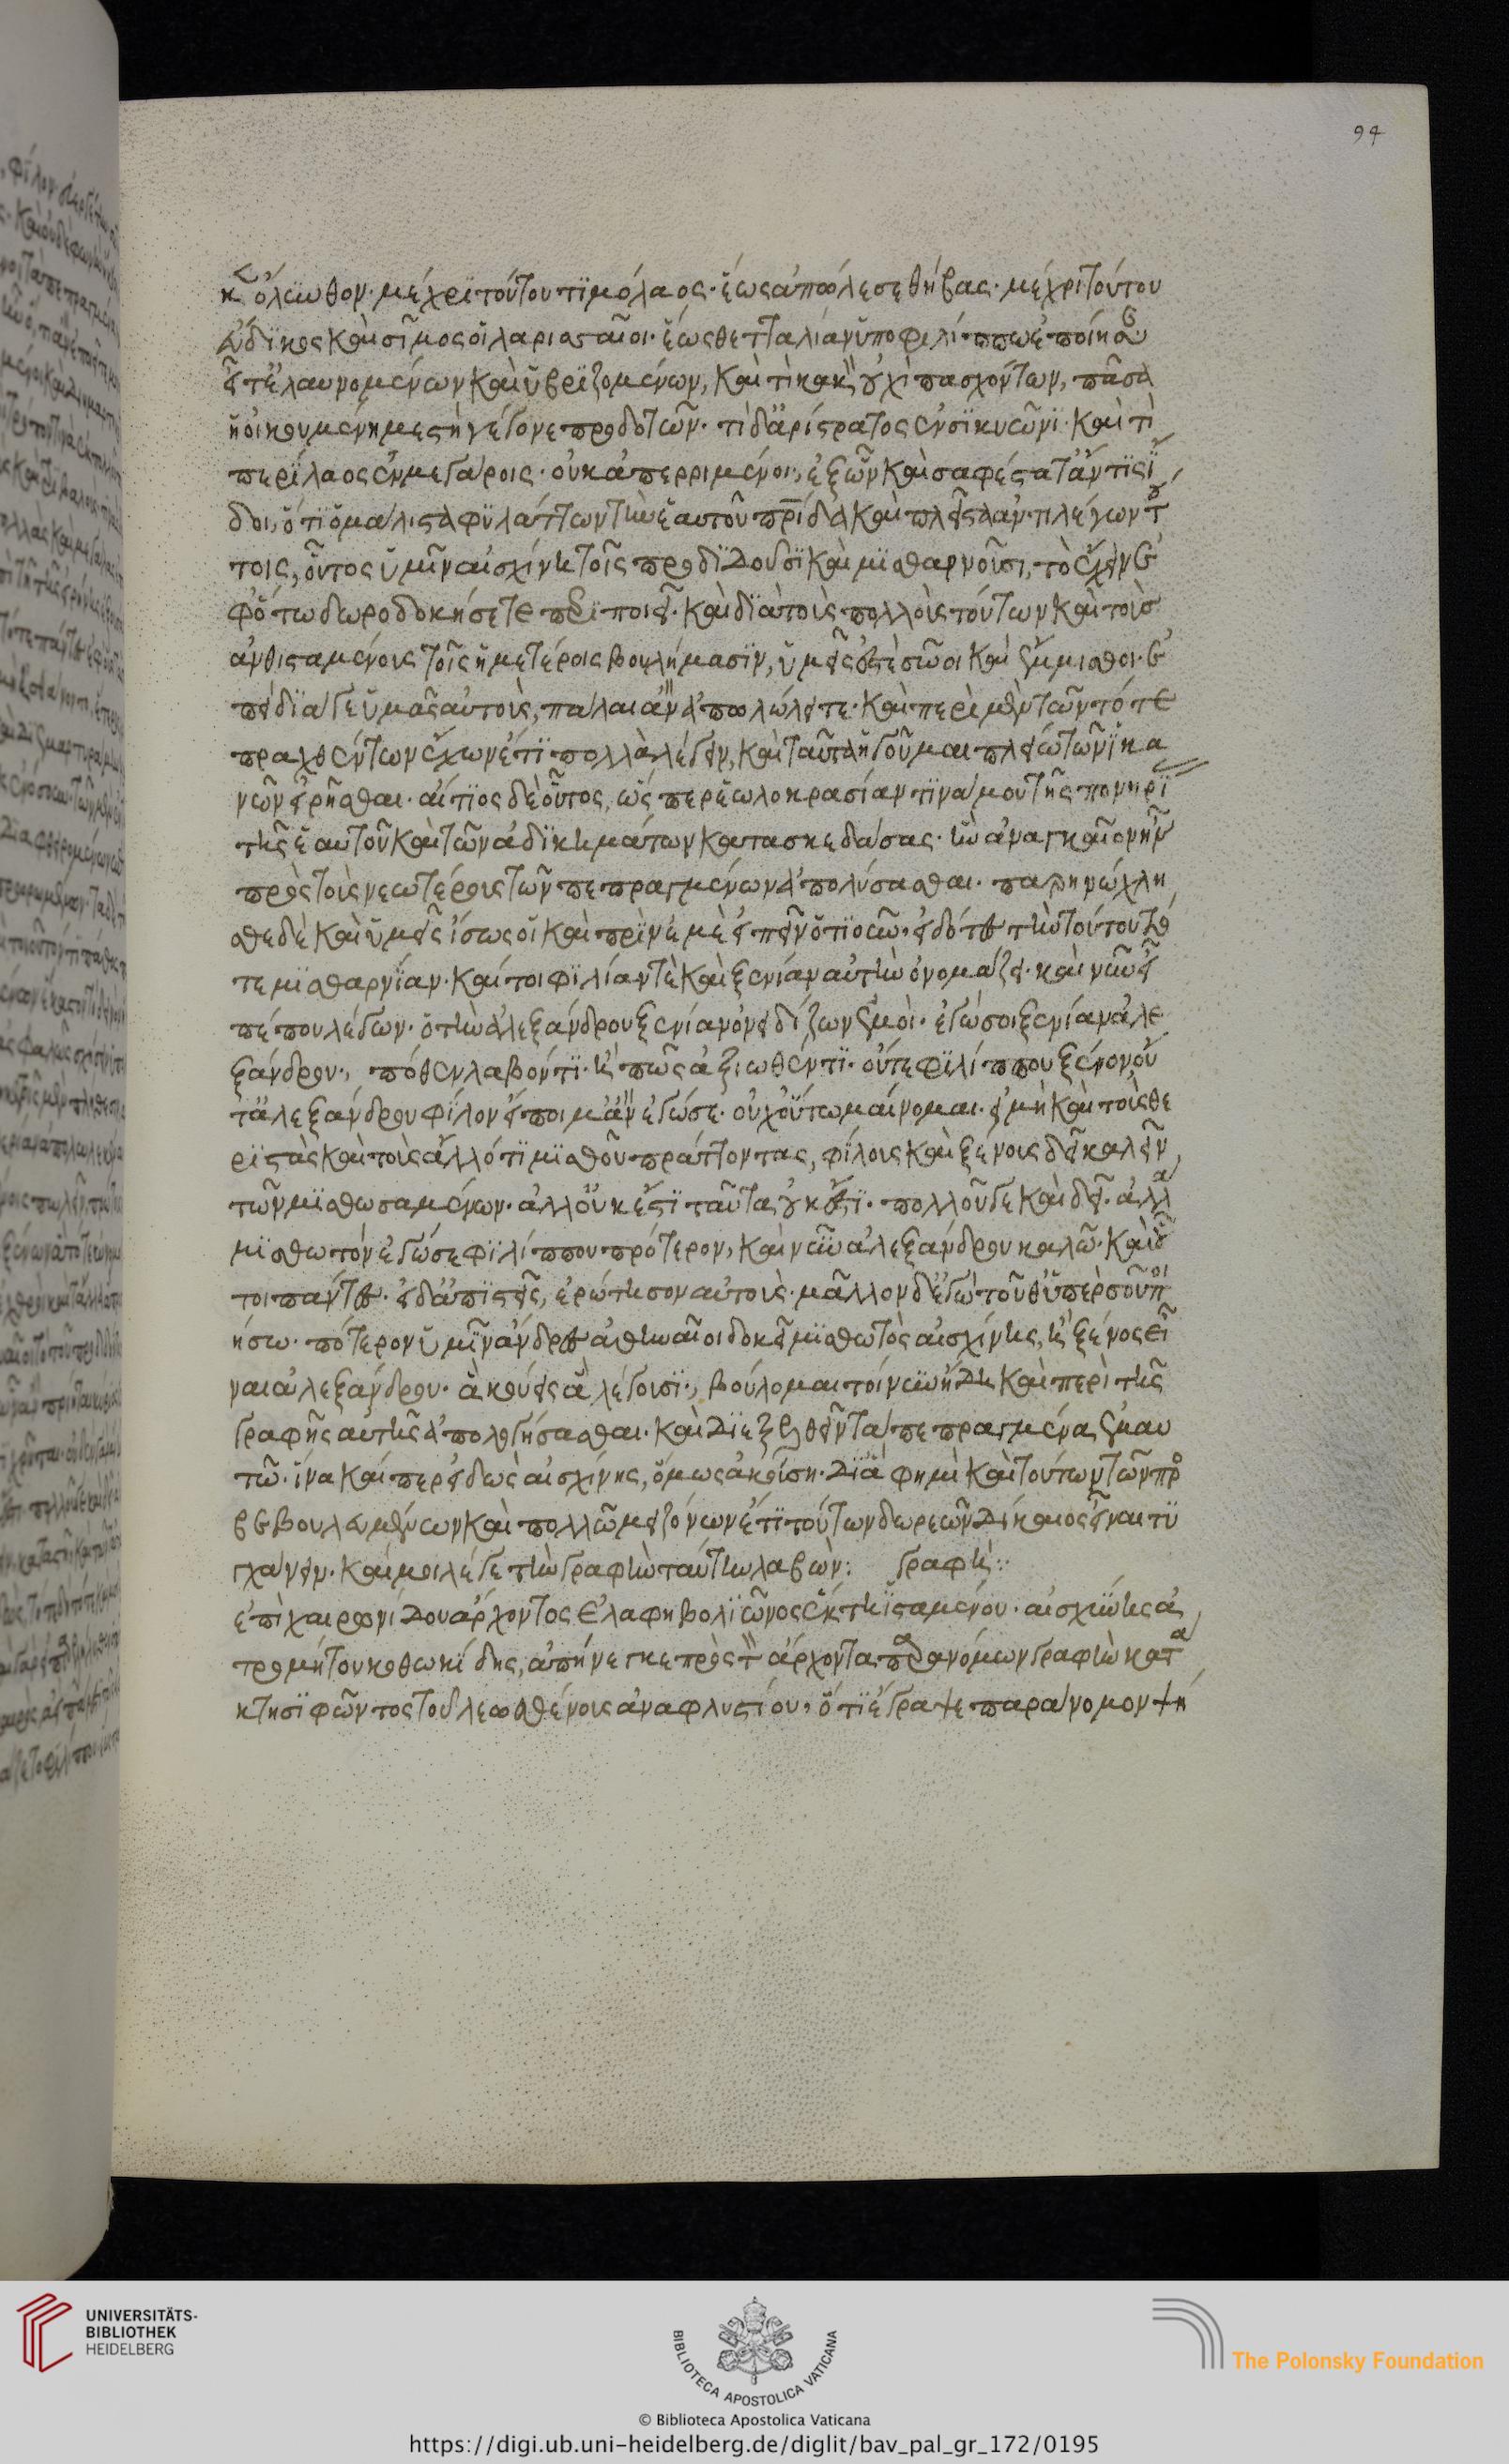 κεν ὄλυνθον. μέχρι τούτου τιμόλαος. ἕως ἀπώλεσε θήβας. μέχρι τούτου
εὔδικος καὶ σῖμος οἱ λαρισσαῖοι. ἕως θετταλίαν ὑπὸ φιλίππω ἐποίησαν
εἶτ' ἐλαυνομένων καὶ ὑβριζομένων, καὶ τί κακὸν οὐχὶ πασχόντων, πᾶσα
ἡ οἰκουμένη μεστὴ γέγονε προδοτῶν. τί δ' ἀρίστρατος ἐν σικυῶνι. καὶ τί
περίλαος ἐν μεγάροις. οὐκ ἀπερριμένοι., ἐξ ὧν καὶ σαφέστατ' ἄν τις ἴ
δοι, ὅτι ὁ μάλιστα φυλάττων τὴν ἑαυτοῦ πατρίδα καὶ πλεῖστα ἀντιλέγων τού
τοις, οὗτος ὑμῖν αἰσχίνη τοῖς προδιδοῦσι καὶ μισθαρνοῦσι, τὸ ἔχειν ἐ
φ' ὅτω δωροδοκήσετε περιποιεῖ. καὶ διὰ τοὺς πολλοὺς τούτων καὶ τοὺς
ἀνθισταμένους τοῖς ἡμετέροις βουλήμασιν, ὑμεῖς ἐστὲ σῶοι καὶ ἔμμισθοι. ἐ
πεὶ διά γε ὑμᾶς αὐτοὺς, πάλαι ἂν ἀπολώλειτε. καὶ περὶ μὲν τῶν τότε
πραχθέντων ἔχων ἔτι πολλὰ λέγειν, καὶ ταῦτα ἡγοῦμαι πλείω τῶν ἱκα
νῶν εἰρῆσθαι. αἴτιος δὲ οὗτος, ὥσπερ ἑωλοκρασίαν τινά μου τῆς πονηρί
τῆς ἑαυτοῦ καὶ τῶν ἀδικημάτων κατασκεδάσας. ἣν ἀναγκαῖον ἦν
πρὸς τοὺς νεωτέρους τῶν πεπραγμένων ἀπολύσασθαι. παρηνώχλη
σθε δὲ καὶ ὑμεῖς ἴσως οἳ καὶ πρὶν ἐμὲ εἰπεῖν ὁτιοῦν. εἰδότες τὴν τούτου τό
τε μισθαρνίαν. καίτοι φιλίαν τὲ καὶ ξενίαν αὐτὴν ὀνομάζει. καὶ νῦν εἶ
πέ που λέγων. ὁ τὴν ἀλεξάνδρου ξενίαν ὀνειδίζων ἐμοί. ἐγώ σοι ξενίαν ἀλε
ξάνδρου., πόθεν λαβόντι. ἢ πῶς ἀξιωθέντι. οὔτε φιλίππου ξένον οὔ
τ' ἀλεξάνδρου φίλον εἴποιμ' ἂν ἐγώ σε. οὐχ οὕτω μαίνομαι. εἰ μὴ καὶ τοὺς θε
ριστὰς καὶ τοὺς ἄλλό τι μισθοῦ πράττοντας, φίλους καὶ ξένους δεῖ καλεῖν
τῶν μισθωσαμένων. ἀλλ' οὐκ ἔστι ταῦτα οὐκ ἔστι. πολλοῦ γε καὶ δεῖ. ἀλλὰ
μισθωτὸν ἐγώ σε φιλίππου πρότερον, καὶ νῦν ἀλεξάνδρου καλῶ. καὶ οὗ
τοι πάντες. εἰ δ' ἀπιστεῖς, ἐρώτησον αὐτούς. μᾶλλον δ' ἐγὼ τοῦθ' ὑπὲρ σοῦ ποι
ήσω. πότερον ὑμῖν ἄνδρες ἀθηναῖοι δοκεῖ μισθωτὸς αἰσχίνης, ἢ ξένος εἶ
ναι ἀλεξάνδρου. ἀκούεις ἃ λέγουσι., βούλομαι τοίνυν ἤδη καὶ περὶ τῆς
γραφῆς αὐτῆς ἀπολογήσασθαι. καὶ διεξελθεῖν τὰ πεπραγμένα ἐμαυ
τῶ. ἵνα καίπερ εἰδὼς αἰσχίνης, ὅμως ἀκούση. δι' ἅ φημὶ καὶ τούτων τῶν προ
βεβουλευμένων καὶ πολλῶ μειζόνων ἔτι τούτων δωρεῶν δίκαιος εἶναι τυ
γχάνειν. καί μοι λέγε τὴν γραφὴν ταύτην λαβών: γραφή:
ἐπὶ χαιρωνίδου ἄρχοντος ἐλαφηβολιῶνος ἕκτη ἱσταμένου. αἰσχίνης ἀ
τρομήτου κοθωκίδης, ἀπήνεγκε πρὸς τὸν ἄρχοντα παρανόμων γραφὴν κατὰ
κτησιφῶντος τοῦ λεωσθένους ἀναφλυστίου, ὅτι ἔγραψε παράνομον ψή
94
UNIVERSITÄTS-
BIBLIOTHEK
HEIDELBERG
BIBLIOTECA APOSTOLICA VATICANA
The Polonsky Foundation
© Biblioteca Apostolica Vaticana
https://digi.ub.uni-heidelberg.de/diglit/bav_pal_gr_172/0195